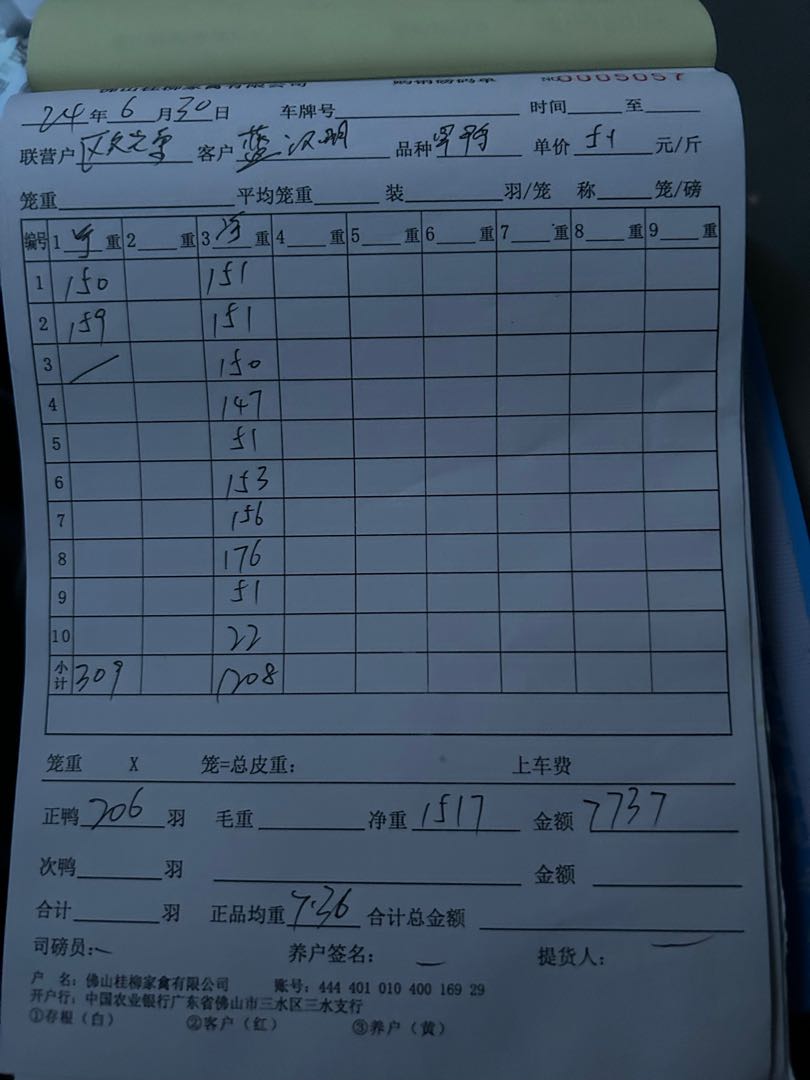 佛山桂柳家禽有限公司 购销磅码单 NO0005057
24年6月30日 车牌号 时间 至
联营户 客户 品种 单价 51 元/斤
笼重 平均笼重 装 羽/笼 称 笼/磅
编号 1 重 2 重 3 重 4 重 5 重 6 重 7 重 8 重 9 重
1 150 151
2 159 151
3 150
4 147
5 51
6 153
7 156
8 176
9 51
10 22
小计 309 1208
笼重 X 笼=总皮重: 上车费
正鸭 206 羽 毛重 净重 1517 金额 7737
次鸭 羽 金额
合计 羽 正品均重 7.36 合计总金额
司磅员: 养户签名: 提货人:
户 名: 佛山桂柳家禽有限公司 账号: 444 401 010 400 169 29
开户行: 中国农业银行广东省佛山市三水区三水支行
①存根(白) ②客户(红) ③养户(黄)